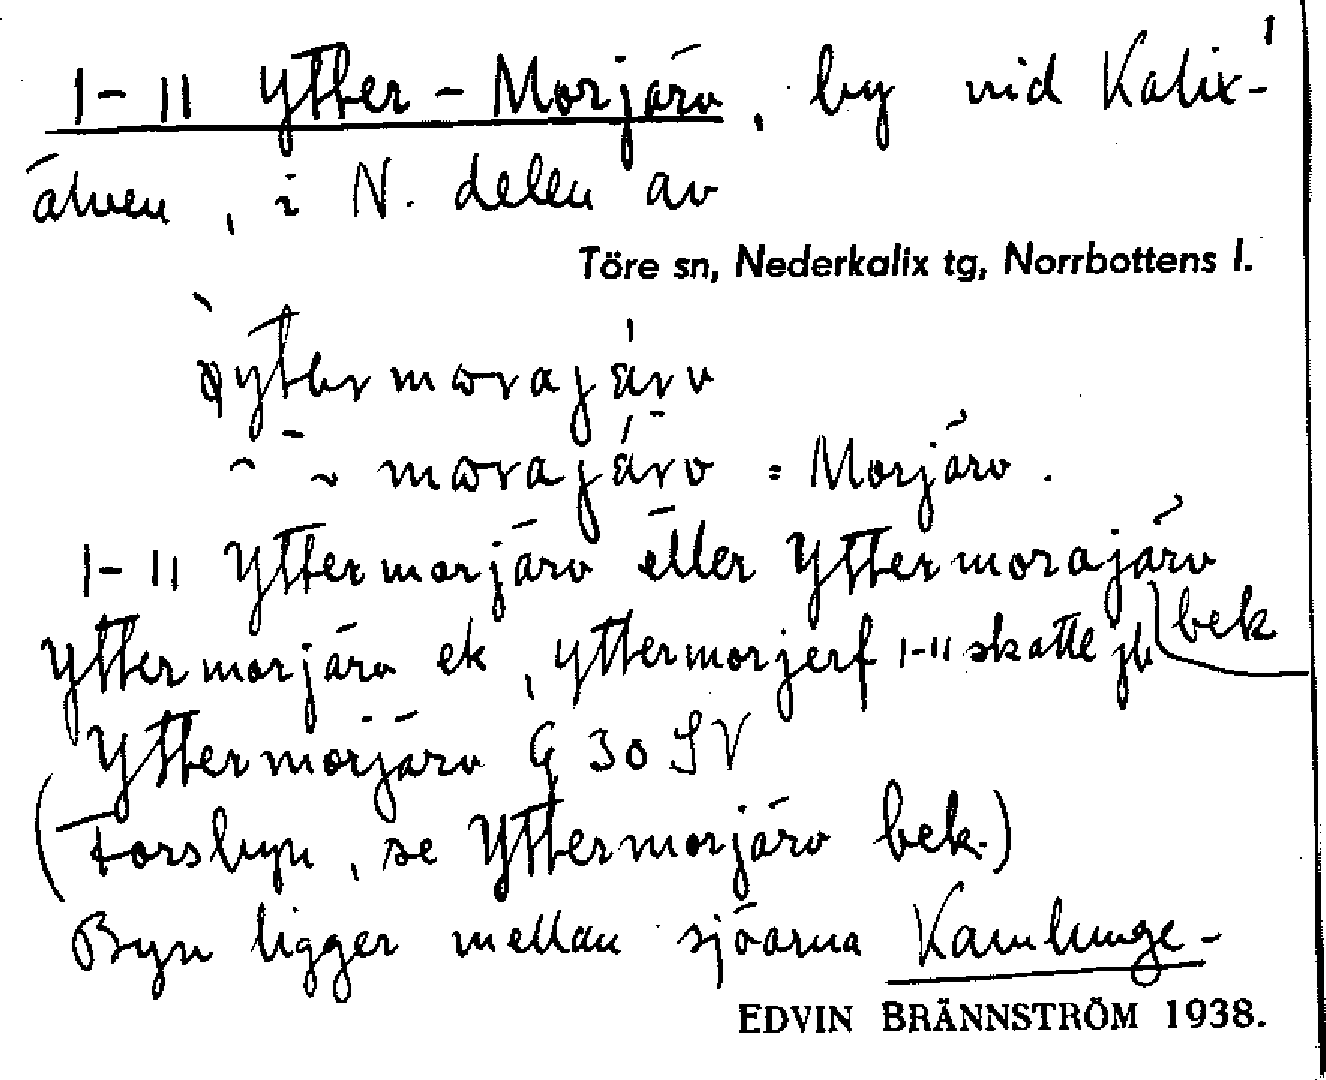 1
1-11 Ytter-Morjärv, by vid Kalix-
älven, i N. delen av
Töre sn, Nederkalix tg, Norrbottens l.
yttermorajärv
morajärv = Morjärv.
1-11 Yttermorjärv eller Yttermorajärv
bek
Yttermorjärv ek, yttermorjerf 1-11 skatte jb
Yttermorjärv G 30 SV
(Forsbyn, se Yttermorjärv bek.)
Byn ligger mellan sjöarna Kamlunge-
EDVIN BRÄNNSTRÖM 1938.